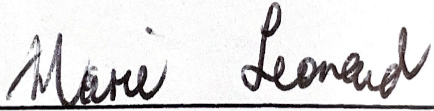 Marie Leonard